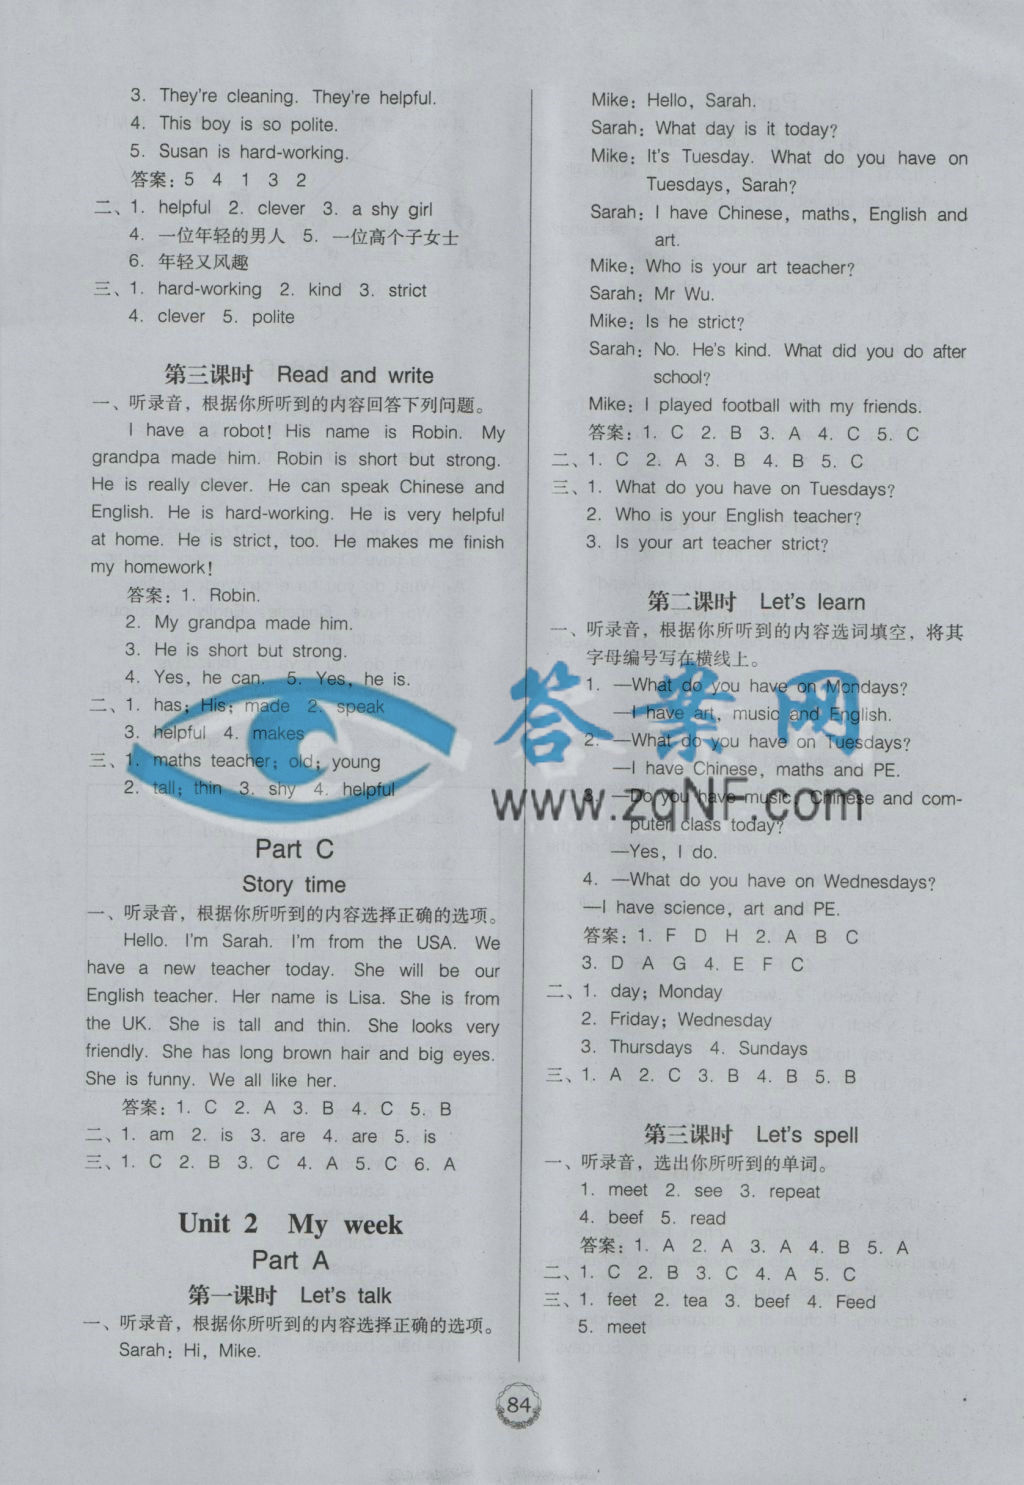 3. They're cleaning. They're helpful.
4. This boy is so polite.
5. Susan is hard-working.
答案:5 4 1 3 2
二、1. helpful 2. clever 3. a shy girl
4. 一位年轻的男人 5. 一位高个子女士
6. 年轻又风趣
三、1. hard-working 2. kind 3. strict
4. clever 5. polite
第三课时 Read and write
一、听录音，根据你所听到的内容回答下列问题。
I have a robot! His name is Robin. My
grandpa made him. Robin is short but strong.
He is really clever. He can speak Chinese and
English. He is hard-working. He is very helpful
at home. He is strict, too. He makes me finish
my homework!
答案:1. Robin.
2. My grandpa made him.
3. He is short but strong.
4. Yes, he can. 5. Yes, he is.
二、1. has; His; made 2. speak
3. helpful 4. makes
三、1. maths teacher; old; young
2. tall; thin 3. shy 4. helpful
Part C
Story time
一、听录音，根据你所听到的内容选择正确的选项。
Hello. I'm Sarah. I'm from the USA. We
have a new teacher today. She will be our
English teacher. Her name is Lisa. She is from
the UK. She is tall and thin. She looks very
friendly. She has long brown hair and big eyes.
She is funny. We all like her.
答案:1. C 2. A 3. B 4. C 5. B
二、1. am 2. is 3. are 4. are 5. is
三、1. C 2. B 3. C 4. A 5. C 6. A
Unit 2 My week
Part A
第一课时 Let's talk
一、听录音，根据你所听到的内容选择正确的选项。
Sarah: Hi, Mike.
Mike: Hello, Sarah.
Sarah: What day is it today?
Mike: It's Tuesday. What do you have on
Tuesdays, Sarah?
Sarah: I have Chinese, maths, English and
art.
Mike: Who is your art teacher?
Sarah: Mr Wu.
Mike: Is he strict?
Sarah: No. He's kind. What did you do after
school?
Mike: I played football with my friends.
答案:1. C 2. B 3. A 4. C 5. C
二、1. C 2. A 3. B 4. B 5. C
三、1. What do you have on Tuesdays?
2. Who is your English teacher?
3. Is your art teacher strict?
第二课时 Let's learn
一、听录音，根据你所听到的内容选词填空，将其
字母编号写在横线上。
1. —What do you have on Mondays?
—I have art, music and English.
2. —What do you have on Tuesdays?
—I have Chinese, maths and PE.
3. —Do you have music, Chinese and com-
puter class today?
—Yes, I do.
4. —What do you have on Wednesdays?
—I have science, art and PE.
答案:1. F D H 2. A B C
3. D A G 4. E F C
二、1. day; Monday
2. Friday; Wednesday
3. Thursdays 4. Sundays
三、1. A 2. C 3. B 4. B 5. B
第三课时 Let's spell
一、听录音，选出你所听到的单词。
1. meet 2. see 3. repeat
4. beef 5. read
答案:1. A 2. A 3. A 4. B 5. A
二、1. C 2. B 3. C 4. A 5. C
三、1. feet 2. tea 3. beef 4. Feed
5. meet
84
答案网
www.zqNF.com